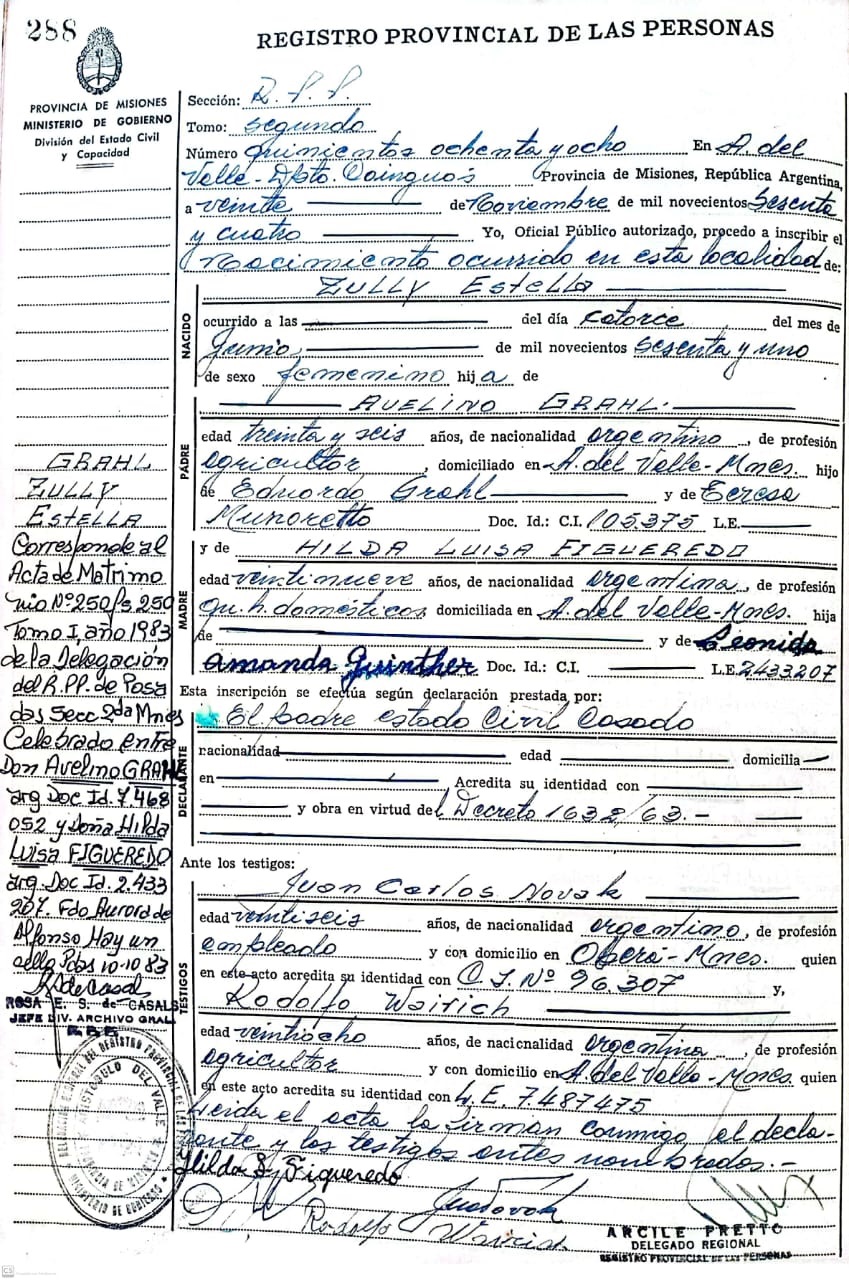 288
REGISTRO PROVINCIAL DE LAS PERSONAS
PROVINCIA DE MISIONES
MINISTERIO DE GOBIERNO
División del Estado Civil
y Capacidad
Sección: R. P. P.
Tomo: segundo
Número quinientos ochenta y ocho En A. del
Valle-Dpto. Cainguás Provincia de Misiones, República Argentina,
a veinte de Noviembre de mil novecientos Sesenta
y cuatro Yo, Oficial Público autorizado, procedo a inscribir el
Nacimiento ocurrido en esta localidad de:
ZULLY EStELLA
NACIDO
ocurrido a las del día catorce del mes de
Junio, de mil novecientos sesenta y uno
de sexo femenino hija de
AVELINO GRAHL.
PADRE
edad treinta y seis años, de nacionalidad argentino, de profesión
agricultor, domiciliado en A. del Valle-Mnes. hijo
de Eduardo Grahl y de Teresa
Munoretto Doc. Id.: C.I. 105.375 L.E.
MADRE
y de HILDA LUISA FIGUEREDO
edad veintinueve años, de nacionalidad argentina, de profesión
qu. h. domésticos domiciliada en A. del Valle-Mnes. hija
de y de Leonida
Amanda Guinther Doc. Id.: C.I. L.E. 2433207
Esta inscripción se efectúa según declaración prestada por:
DECLARANTE
El padre estado Civil Casado
nacionalidad edad domicilia
en Acredita su identidad con
y obra en virtud del Decreto 1632/63.-
Ante los testigos:
TESTIGOS
Juan Carlos Novak
edad veintiseis años, de nacionalidad argentino, de profesión
empleado y con domicilio en Oberá-Mnes. quien
en este acto acredita su identidad con C.I. Nº 96.307 y,
Rodolfo Wairich
edad veintiocho años, de nacionalidad argentina, de profesión
agricultor y con domicilio en A. del Valle-Mnes. quien
en este acto acredita su identidad con L.E. 7.487475
Leida el acta la firman conmigo el decla-
rante y los testigos antes nombrados.-
Hilda L. Figueredo
Rodolfo Wairich
ARCILE PRETTO
DELEGADO REGIONAL
REGISTRO PROVINCIAL DE LAS PERSONAS
GRAHL
ZULLY
EStELLA
Corresponde al
Acta de Matrimo
nio Nº 250 fs. 250
Tomo I, año 1983
de la Delegación
del R.PP. de Posa
das Secc 2da Mnes
Celebrado entre
Don Avelino GRAHL
arg Doc Id. 7.468
052 y Doña Hilda
Luisa FIGUEREDO
arg. Doc Id. 2.433
207. Fdo Aurora de
Alfonso Hay un
sello Pdas 10-10 83
R de Casals
ROSA E. S. de CASALS
JEFE DIV. ARCHIVO GRAL.